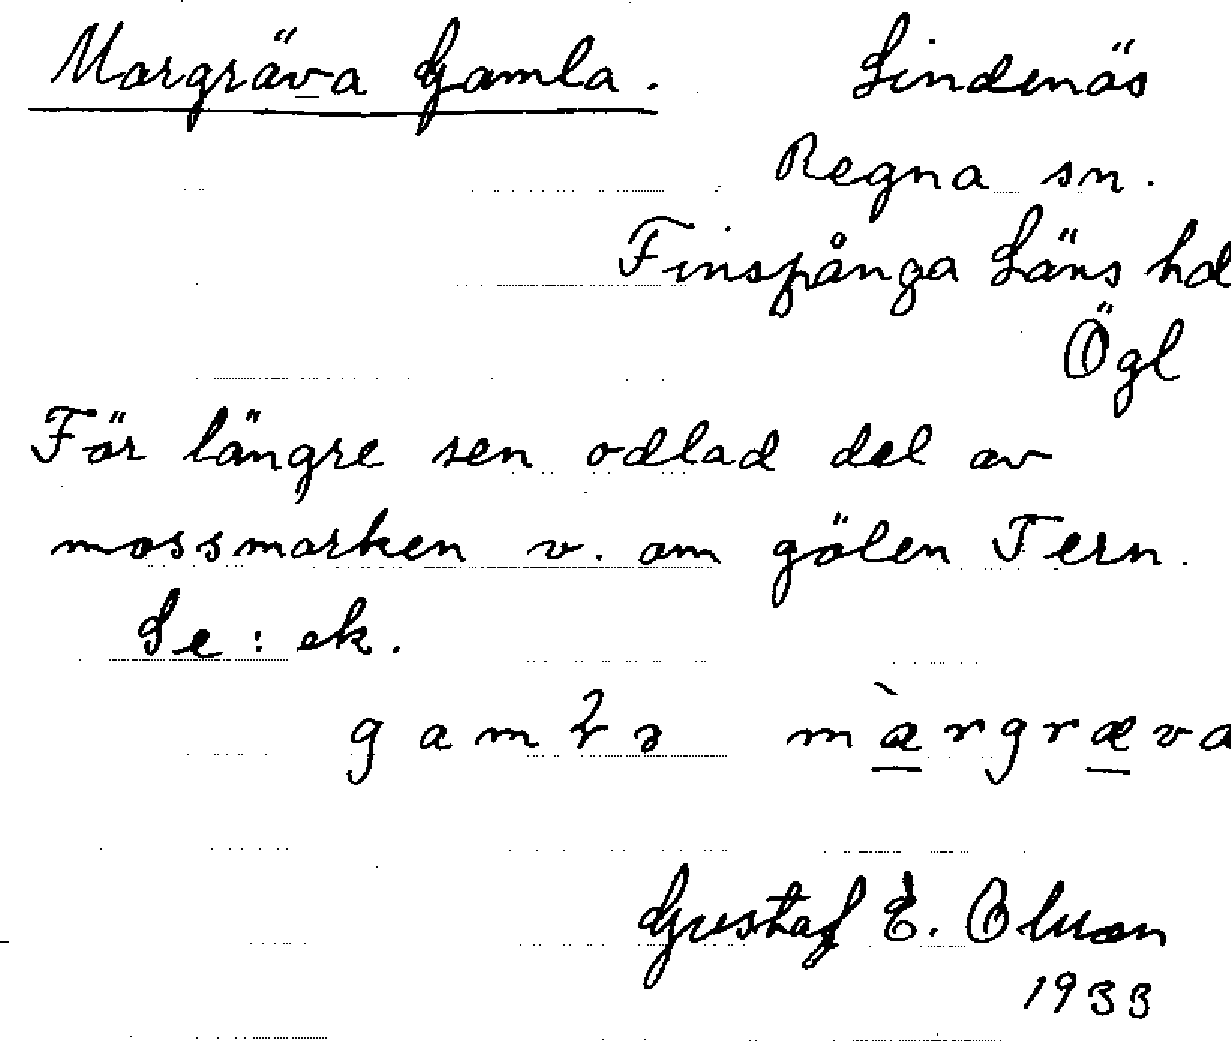 Margräva Gamla. Lindenäs
Regna sn.
Finspånga Läns hd
Ögl
För längre sen odlad del av
mossmarken v. om gölen Tern.
Se: ek.
gamɽə mæ̀rgræva
Gustaf E. Olsson
1933